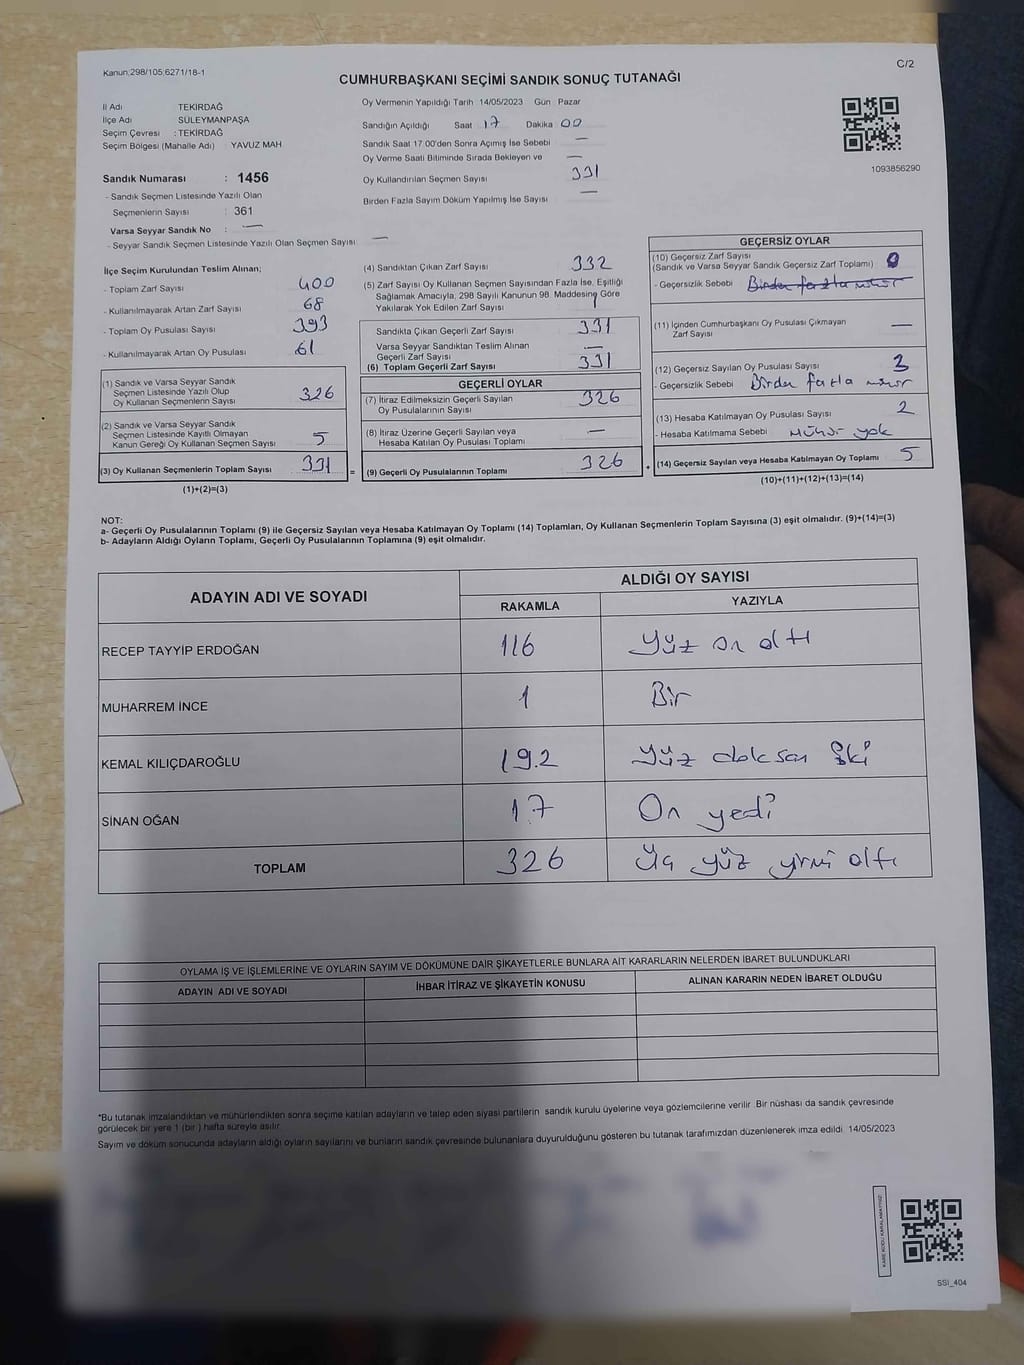 Kanun;298/105;6271/18-1
C/2
CUMHURBAŞKANI SEÇİMİ SANDIK SONUÇ TUTANAĞI
İl Adı TEKİRDAĞ
İlçe Adı SÜLEYMANPAŞA
Seçim Çevresi : TEKİRDAĞ
Seçim Bölgesi (Mahalle Adı) : YAVUZ MAH
Sandık Numarası : 1456
- Sandık Seçmen Listesinde Yazılı Olan
Seçmenlerin Sayısı : 361
Varsa Seyyar Sandık No : —
- Seyyar Sandık Seçmen Listesinde Yazılı Olan Seçmen Sayısı —
Oy Vermenin Yapıldığı Tarih 14/05/2023 Gün Pazar
Sandığın Açıldığı Saat 17 Dakika 00
Sandık Saat 17.00'den Sonra Açımış İse Sebebi —
Oy Verme Saati Bitiminde Sırada Bekleyen ve —
Oy Kullandırılan Seçmen Sayısı 331
Birden Fazla Sayım Döküm Yapılmış İse Sayısı —
1093856290
İlçe Seçim Kurulundan Teslim Alınan;
- Toplam Zarf Sayısı 400
- Kullanılmayarak Artan Zarf Sayısı 68
- Toplam Oy Pusulası Sayısı 393
- Kullanılmayarak Artan Oy Pusulası 61
(1) Sandık ve Varsa Seyyar Sandık
Seçmen Listesinde Yazılı Olup
Oy Kullanan Seçmenlerin Sayısı 326
(2) Sandık ve Varsa Seyyar Sandık
Seçmen Listesinde Kayıtlı Olmayan
Kanun Gereği Oy Kullanan Seçmen Sayısı 5
(3) Oy Kullanan Seçmenlerin Toplam Sayısı 331 =
(1)+(2)=(3)
(4) Sandıktan Çıkan Zarf Sayısı 332
(5) Zarf Sayısı Oy Kullanan Seçmen Sayısından Fazla İse, Eşitliği
Sağlamak Amacıyla, 298 Sayılı Kanunun 98. Maddesine Göre
Yakılarak Yok Edilen Zarf Sayısı 1
Sandıkta Çıkan Geçerli Zarf Sayısı 331
Varsa Seyyar Sandıktan Teslim Alınan
Geçerli Zarf Sayısı —
(6) Toplam Geçerli Zarf Sayısı 331
GEÇERLİ OYLAR
(7) İtiraz Edilmeksizin Geçerli Sayılan
Oy Pusulalarının Sayısı 326
(8) İtiraz Üzerine Geçerli Sayılan veya
Hesaba Katılan Oy Pusulası Toplamı —
(9) Geçerli Oy Pusulalarının Toplamı 326 +
GEÇERSİZ OYLAR
(10) Geçersiz Zarf Sayısı
(Sandık ve Varsa Seyyar Sandık Geçersiz Zarf Toplamı) 0
- Geçersizlik Sebebi Birden fazla mühür
(11) İçinden Cumhurbaşkanı Oy Pusulası Çıkmayan
Zarf Sayısı —
(12) Geçersiz Sayılan Oy Pusulası Sayısı 3
- Geçersizlik Sebebi Birden fazla mühür
(13) Hesaba Katılmayan Oy Pusulası Sayısı 2
- Hesaba Katılmama Sebebi Mühür yok
(14) Geçersiz Sayılan veya Hesaba Katılmayan Oy Toplamı 5
(10)+(11)+(12)+(13)=(14)
NOT:
a- Geçerli Oy Pusulalarının Toplamı (9) ile Geçersiz Sayılan veya Hesaba Katılmayan Oy Toplamı (14) Toplamları, Oy Kullanan Seçmenlerin Toplam Sayısına (3) eşit olmalıdır. (9)+(14)=(3)
b- Adayların Aldığı Oyların Toplamı, Geçerli Oy Pusulalarının Toplamına (9) eşit olmalıdır.
ADAYIN ADI VE SOYADI
ALDIĞI OY SAYISI
RAKAMLA YAZIYLA
RECEP TAYYİP ERDOĞAN 116 Yüz on altı
MUHARREM İNCE 1 Bir
KEMAL KILIÇDAROĞLU 192 Yüz doksan iki
SİNAN OĞAN 17 On yedi
TOPLAM 326 Üç yüz yirmi altı
OYLAMA İŞ VE İŞLEMLERİNE VE OYLARIN SAYIM VE DÖKÜMÜNE DAİR ŞİKAYETLERLE BUNLARA AİT KARARLARIN NELERDEN İBARET BULUNDUKLARI
ADAYIN ADI VE SOYADI İHBAR İTİRAZ VE ŞİKAYETİN KONUSU ALINAN KARARIN NEDEN İBARET OLDUĞU
*Bu tutanak imzalandıktan ve mühürlendikten sonra seçime katılan adayların ve talep eden siyasi partilerin sandık kurulu üyelerine veya gözlemcilerine verilir. Bir nüshası da sandık çevresinde
görülecek bir yere 1 (bir ) hafta süreyle asılır.
Sayım ve döküm sonucunda adayların aldığı oyların sayılarını ve bunların sandık çevresinde bulunanlara duyurulduğunu gösteren bu tutanak tarafımızdan düzenlenerek imza edildi. 14/05/2023
KARE KODU KARALAMAYINIZ!
SSI_404